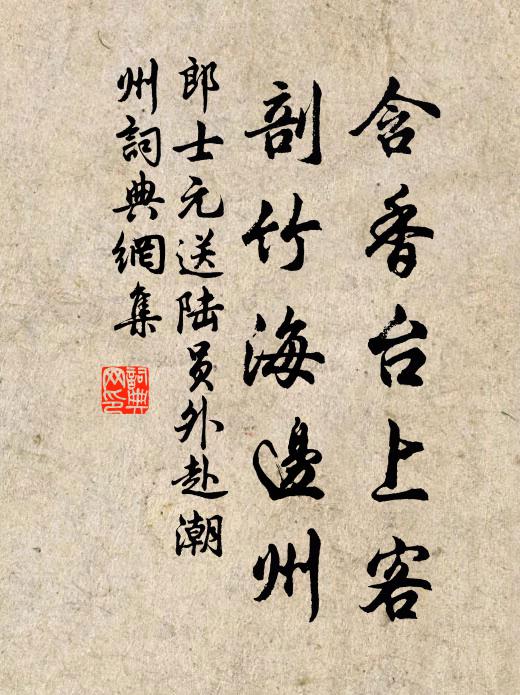 含香台上客
剖竹海邊州
郎士元送陆员外赴潮
州詞典網集
詞典
网印